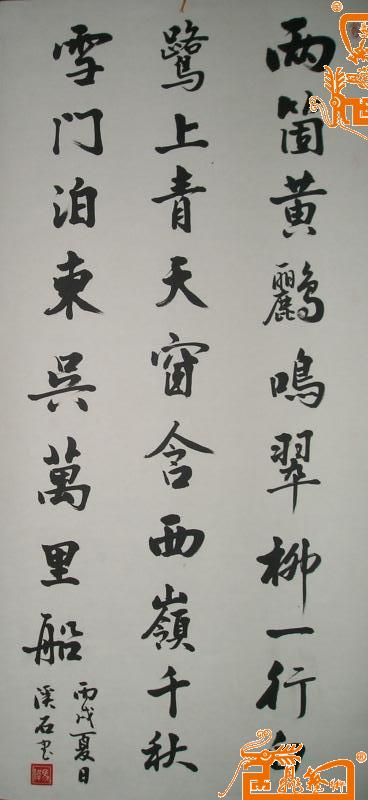 兩箇黄鸝鳴翠柳一行白
鷺上青天窗含西嶺千秋
雪门泊東吳萬里船
丙戌夏日
溪石书